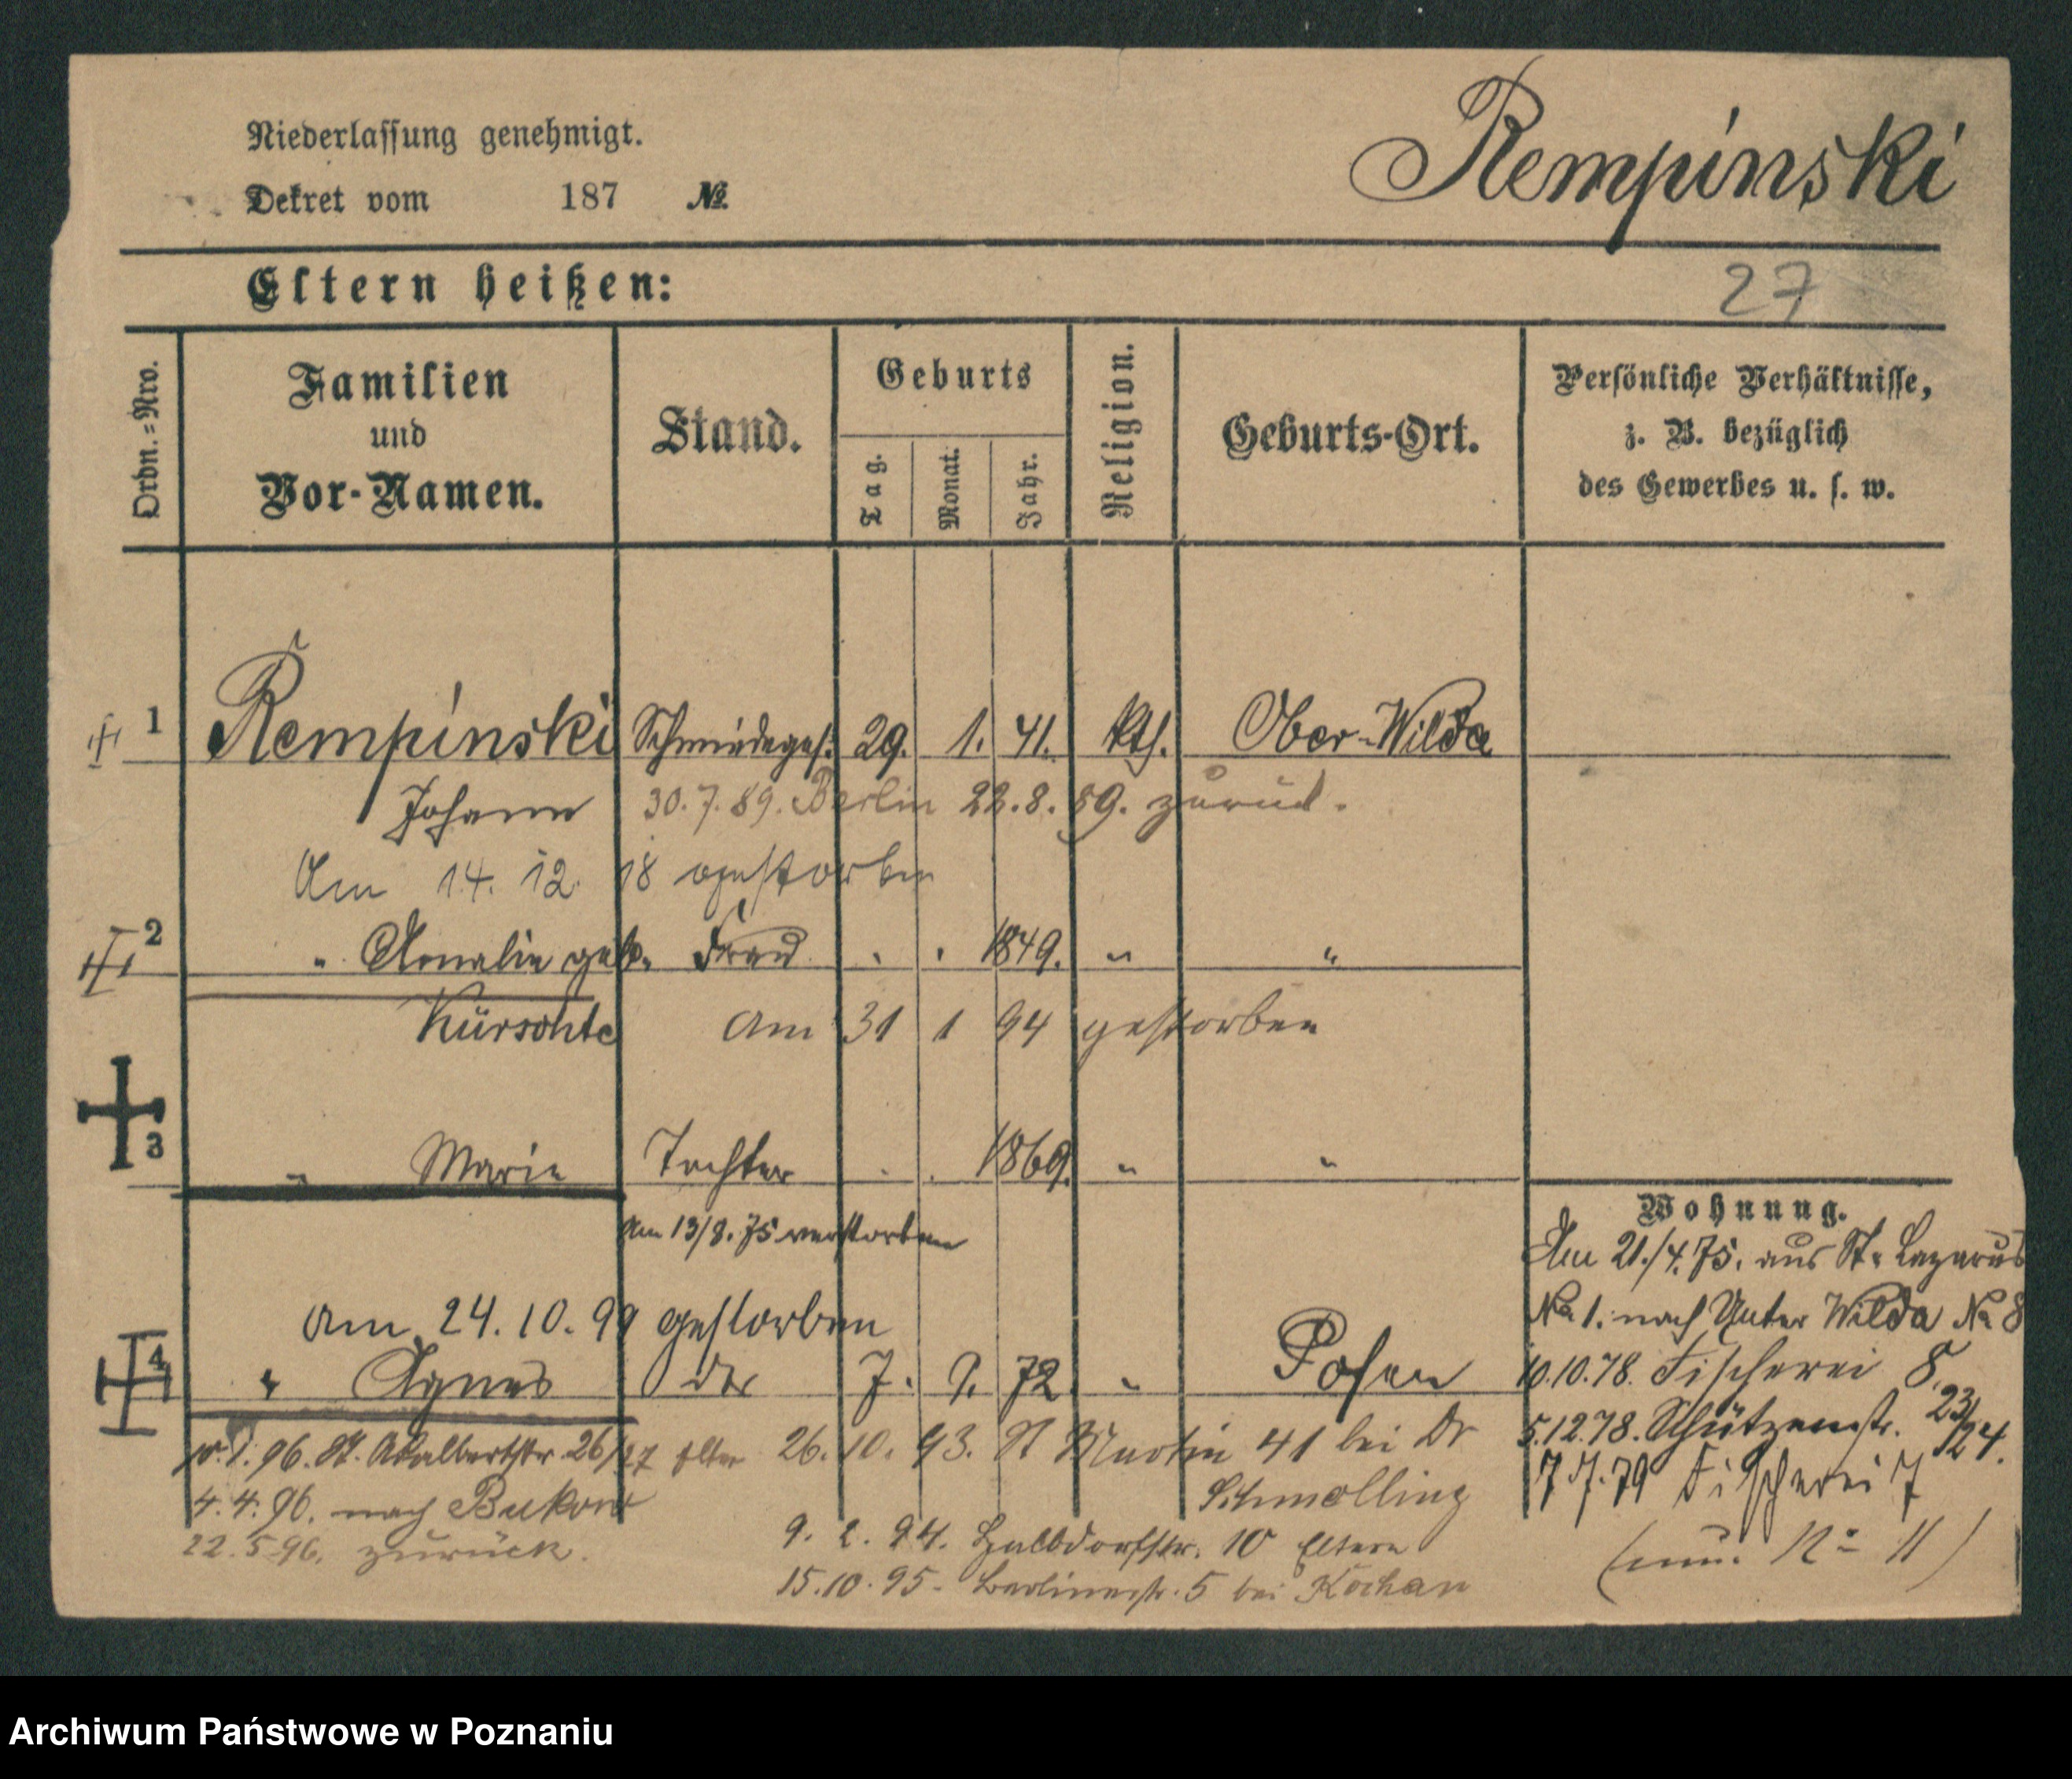 Niederlassung genehmigt.
Rempinski
Dekret vom 187 №
Eltern heißen:
27
Ordn.=Nro.
Familien und Vor-Namen.
Stand.
Geburts
Tag. Monat. Jahr.
Religion.
Geburts-Ort.
Persönliche Verhältnisse,
z. B. bezüglich
des Gewerbes u. s. w.
1 Rempinski Schmiedeges. 29. 1. 41. kth. Ober-Wilda
Johann 30.7.89. Berlin 22.8.89. zurück.
Am 14. 12. 18 gestorben
2 " Amalie geb. Frau . . 1849. " "
Kürschte am 31 1 94 gestorben
3 " Marie Tochter . . 1869. " "
am 13/8. 75 verstorben
am 24.10.99 gestorben
4 " Agnes 7. 9. 72. " Posen
96. St. Adalbertstr. 26/27 Eltern
26. 10. 93. St Martin 41 bei Dr
Schmolling
4.4.96. nach Bukow
22.5.96. zurück.
9. 2. 94. Halbdorfstr. 10 Eltern
15.10.95. Berlinerstr. 5 bei Kochan
Wohnung.
Am 21./4.75. aus St. Lazarus
No 1. nach Unter Wilda No 8
10.10.78. Fischerei 8.
5.12.78. Schützenstr. 23/24.
79 Fischerei 7
No 11)
Archiwum Państwowe w Poznaniu